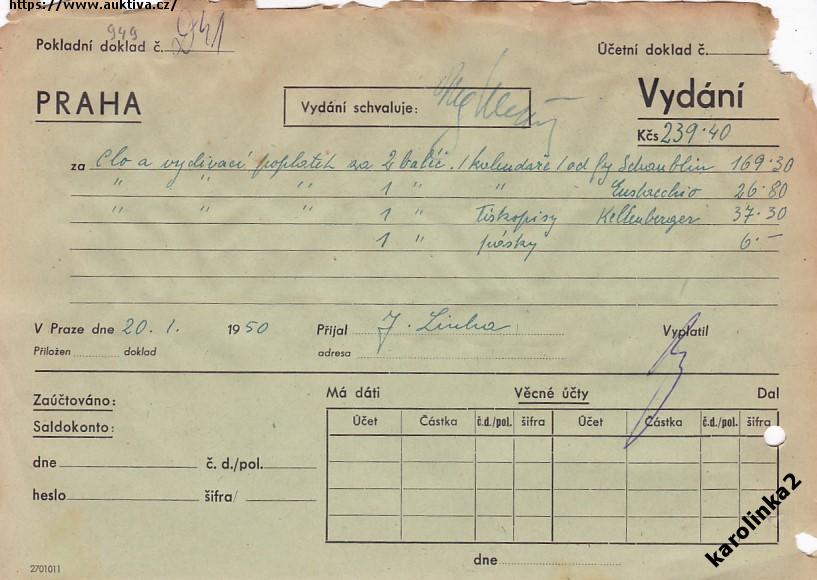 https://www.auktiva.cz/
949
Pokladní doklad č. 941
Účetní doklad č.
PRAHA
Vydání schvaluje:
Vydání
Kčs 239·40
za Clo a vydívací poplatek za 2 balíč. /kalendáře/ od fy Schaublin 169·30
" " " 1 " " Eustacchio 26·80
" " " 1 " Tiskopisy Kellenberger 37·30
1 " pásky 6·–
V Praze dne 20. 1. 1950 Přijal J. Linha Vyplatil
Přiložen doklad adresa
Zaúčtováno:
Má dáti Věcné účty Dal
Saldokonto:
Účet Částka č.d./pol. šifra Účet Částka č.d./pol. šifra
dne č. d./pol.
heslo šifra/
dne
2701011
karolinka2